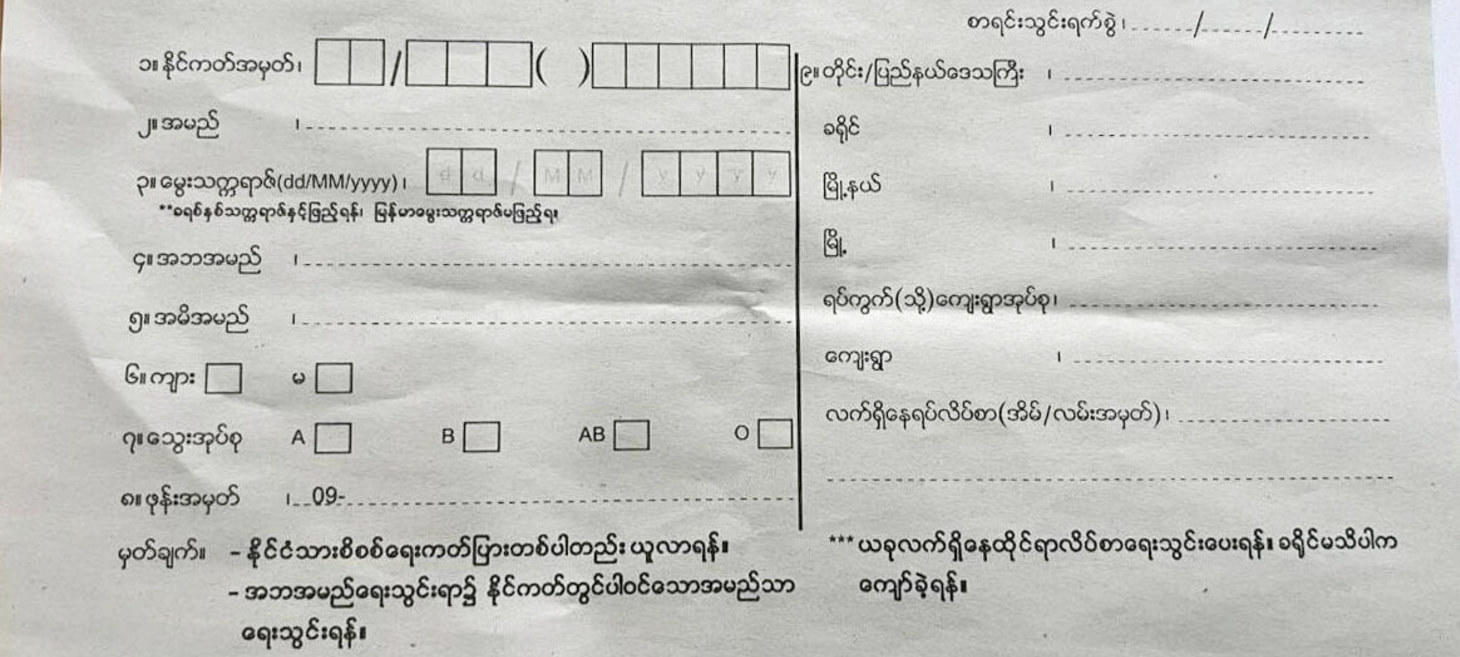 စာရင်းသွင်းရက်စွဲ၊ ....../....../.........
၁။ နိုင်ကတ်အမှတ်၊ / ( )
၂။ အမည် ၊
၃။ မွေးသက္ကရာဇ်(dd/MM/yyyy)၊ d d / M M / y y y y
**ခရစ်နှစ်သက္ကရာဇ်နှင့်ဖြည့်ရန်၊ မြန်မာမွေးသက္ကရာဇ်မဖြည့်ရ။
၄။ အဘအမည် ၊
၅။ အမိအမည် ၊
၆။ ကျား မ
၇။ သွေးအုပ်စု A B AB O
၈။ ဖုန်းအမှတ် ၊ 09-
မှတ်ချက်။ - နိုင်ငံသားစိစစ်ရေးကတ်ပြားတစ်ပါတည်း ယူလာရန်။
- အဘအမည်ရေးသွင်းရာ၌ နိုင်ကတ်တွင်ပါဝင်သောအမည်သာ
ရေးသွင်းရန်။
၉။ တိုင်း/ပြည်နယ်ဒေသကြီး ၊
ခရိုင် ၊
မြို့နယ် ၊
မြို့ ၊
ရပ်ကွက်(သို့)ကျေးရွာအုပ်စု၊
ကျေးရွာ ၊
လက်ရှိနေရပ်လိပ်စာ(အိမ်/လမ်းအမှတ်)၊
***ယခုလက်ရှိနေထိုင်ရာလိပ်စာရေးသွင်းပေးရန်။ ခရိုင်မသိပါက
ကျော်ခဲ့ရန်။